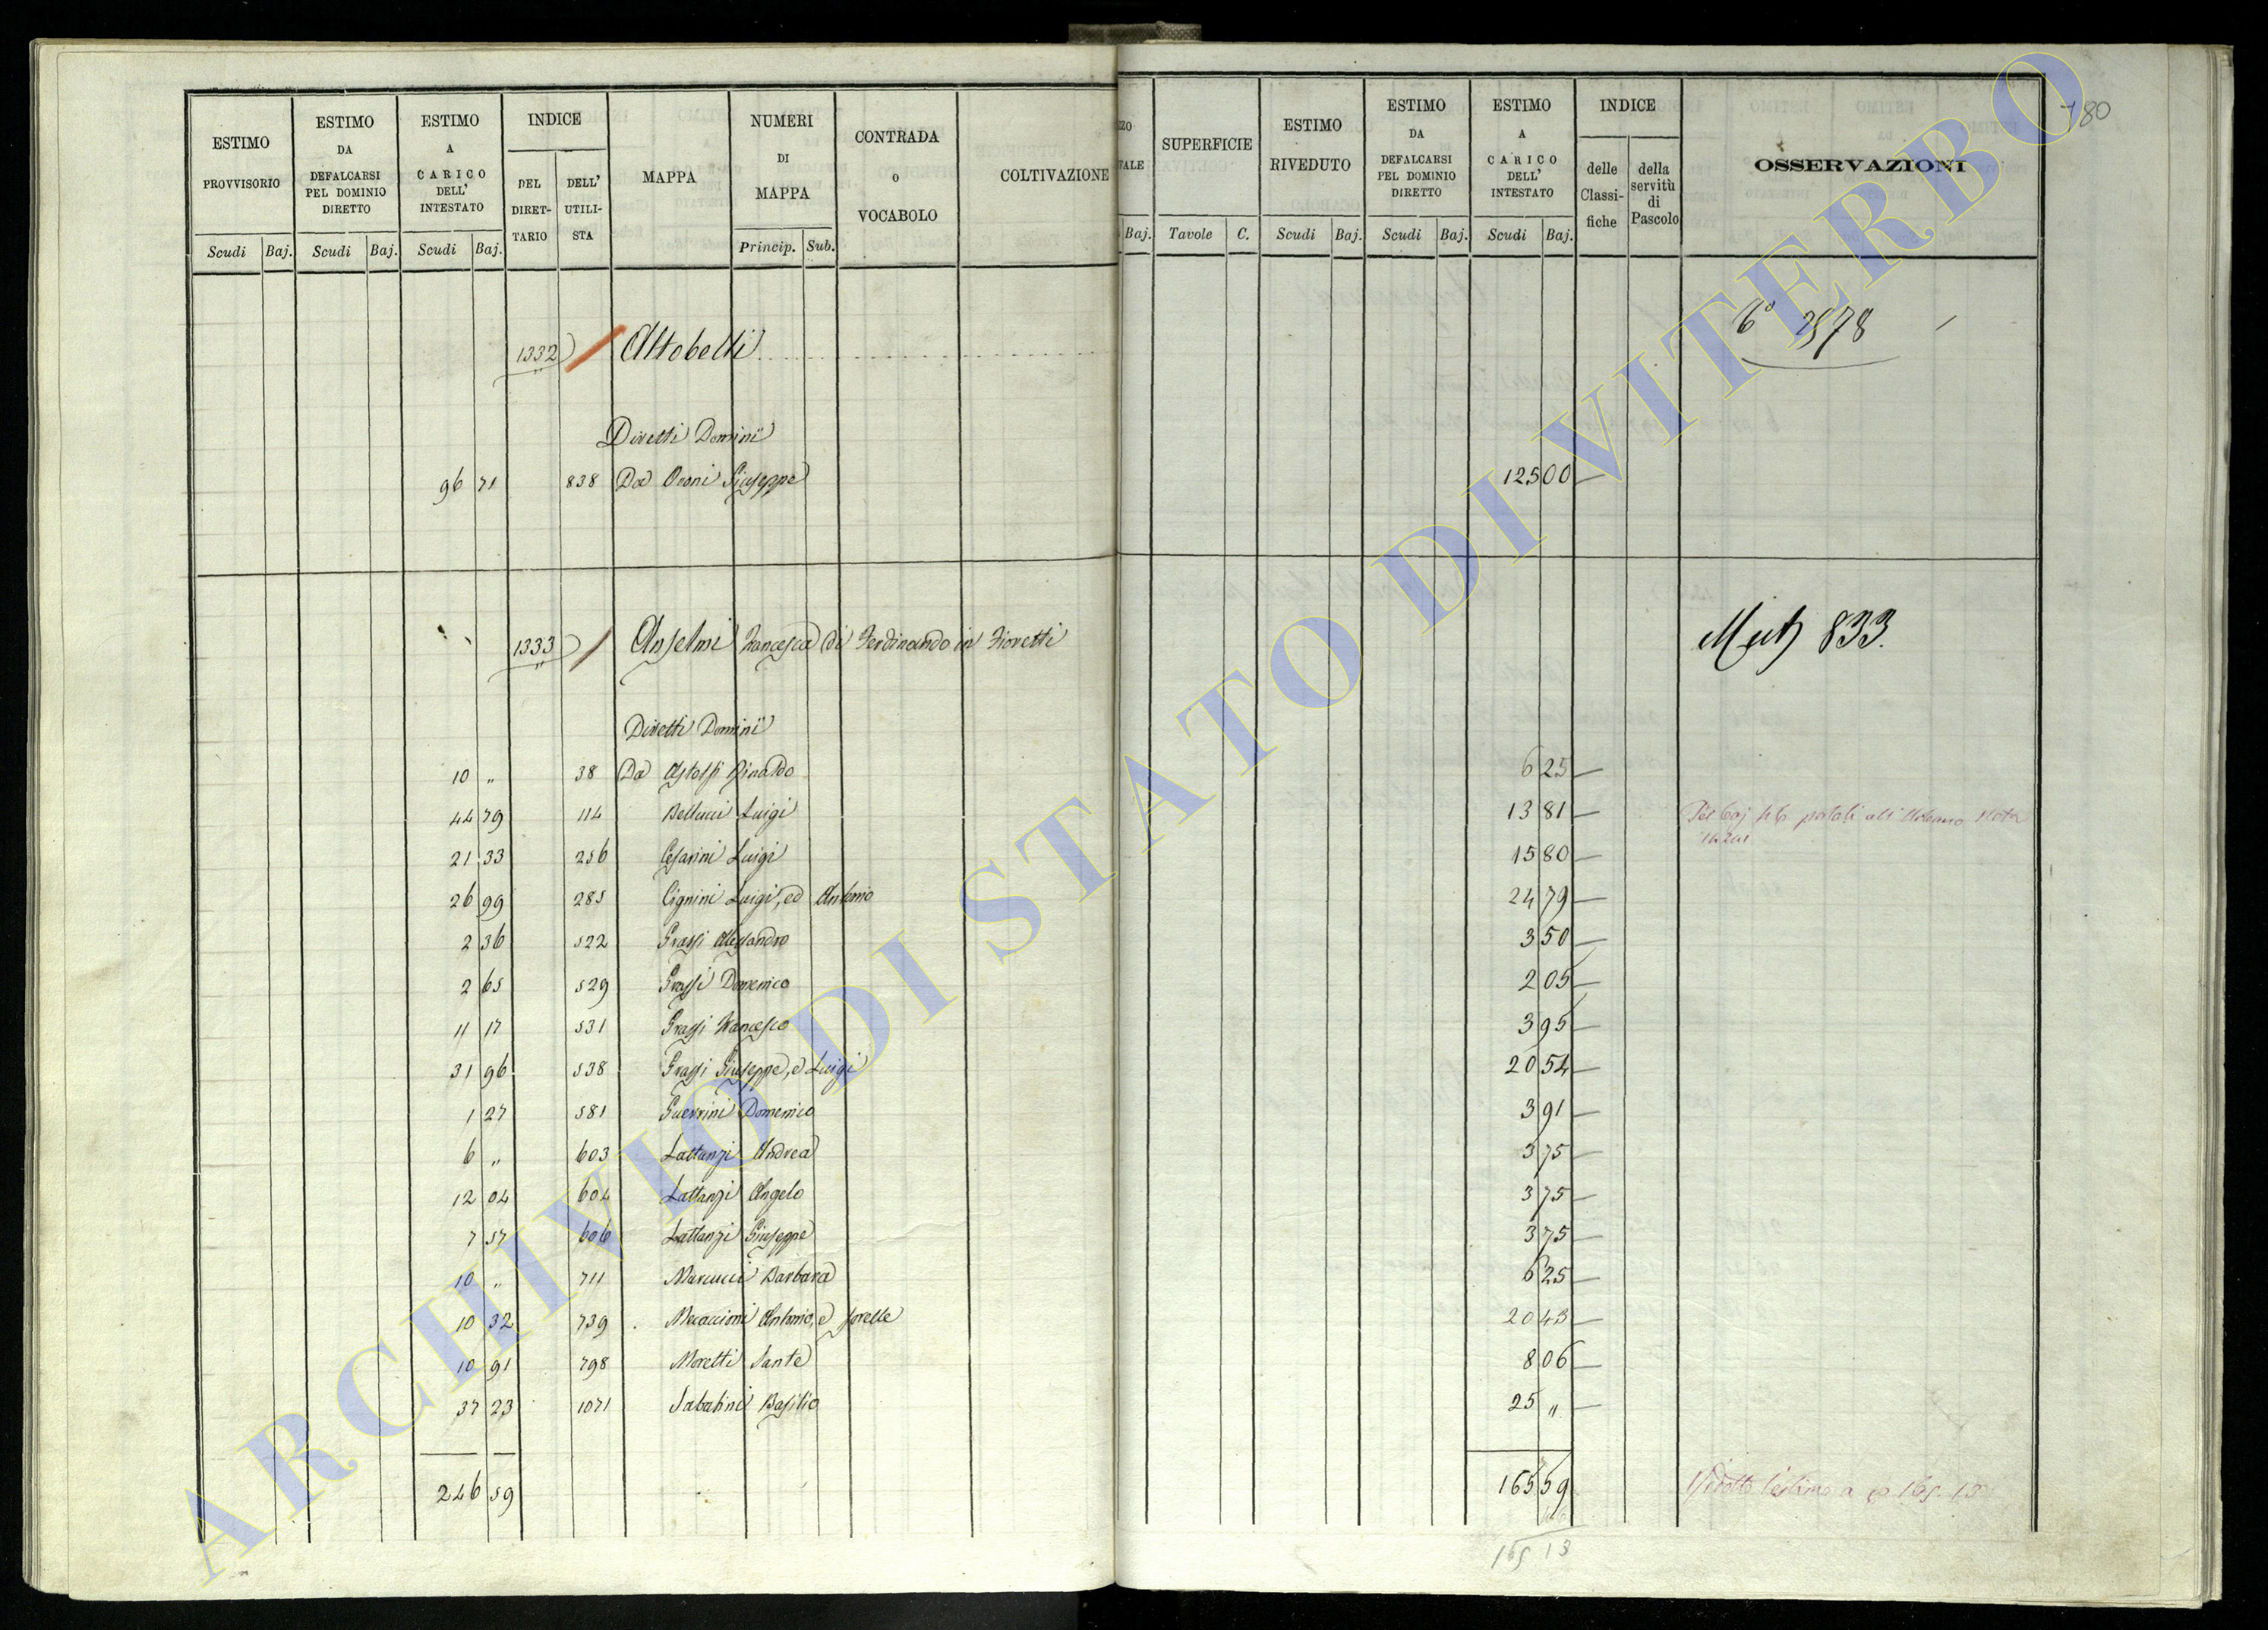 ESTIMO PROVVISORIO
ESTIMO DA DEFALCARSI PEL DOMINIO DIRETTO
ESTIMO A CARICO DELL' INTESTATO
INDICE
DEL DIRET- TARIO
DELL' UTILI- STA
MAPPA
NUMERI DI MAPPA
CONTRADA O VOCABOLO
COLTIVAZIONE
Scudi Baj. Scudi Baj. Scudi Baj. Princip. Sub.
ZO
TALE
SUPERFICIE
ESTIMO RIVEDUTO
ESTIMO DA DEFALCARSI PEL DOMINIO DIRETTO
ESTIMO A CARICO DELL' INTESTATO
INDICE
delle Classi- fiche
della servitù di Pascolo
OSSERVAZIONI
Baj. Tavole C. Scudi Baj. Scudi Baj. Scudi Baj.
180
1332 Altobelli 6° 2578
Diretti Dominii
96 71 838 Da Orani Giuseppe 125 00
1333 Anselmi Francesca di Ferdinando in Fioretti Mut 833.
Diretti Dominii
10 " 38 Da Astolfi Rinaldo 6 25
44 79 114 Bellucci Luigi 13 81 Per baj 46 portati all'Urbano Nota
21 33 256 Cesarini Luigi 15 80
26 99 285 Cignini Luigi, ed Antonio 24 79
2 36 522 Grassi Alessandro 3 50
2 65 529 Grassi Domenico 2 05
11 17 531 Grassi Francesco 3 95
31 96 538 Grassi Giuseppe, e Luigi 20 54
1 27 581 Guerrini Domenico 3 91
6 " 603 Lattanzi Andrea 3 75
12 04 604 Lattanzi Angelo 3 75
7 57 606 Lattanzi Giuseppe 3 75
10 " 711 Marcucci Barbara 6 25
10 32 739 Mecaccioni Antonio, e sorelle 20 43
10 91 798 Moretti Sante 8 06
37 23 1071 Sabatini Basilio 25 "
246 59 165 59 Ridotto l'estimo a 165.13
165 13
ARCHIVIO DI STATO DI VITERBO